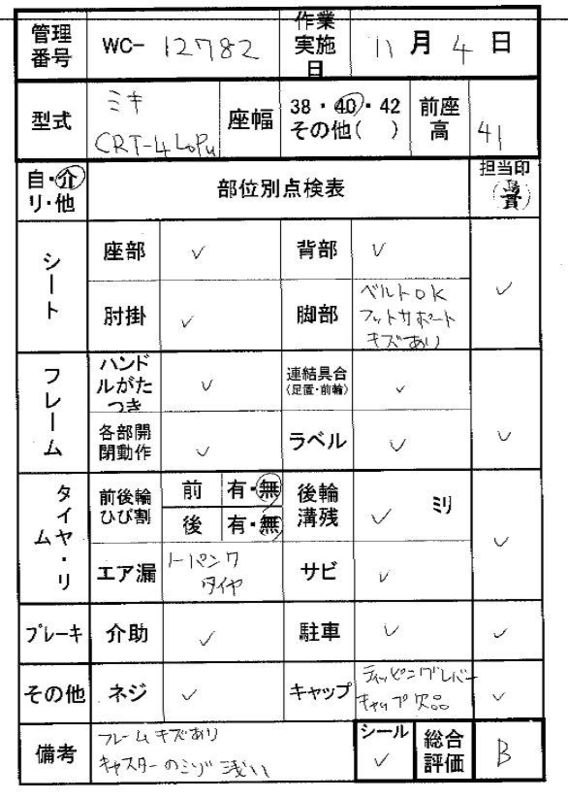 管理番号 WC- 12782 作業実施日 11 月 4 日
型式 ミキ CRT-4LoPu 座幅 38・40・42 その他( ) 前座高 41
自・介 リ・他 部位別点検表 担当印
シート 座部 ✓ 背部 ✓ ✓
肘掛 ✓ 脚部 ベルトOK フットサポート キズあり
フレーム ハンドルがたつき ✓ 連結具合(足置・前輪) ✓ ✓
各部開閉動作 ✓ ラベル ✓
タイヤ・リム 前後輪ひび割 前 有・無 後輪溝残 ✓ ミリ ✓
後 有・無
エア漏 ノーパンク タイヤ サビ ✓
ブレーキ 介助 ✓ 駐車 ✓ ✓
その他 ネジ ✓ キャップ ティッピングレバー キャップ欠品 ✓
備考 フレームキズあり キャスターのミゾ浅い シール ✓ 総合評価 B